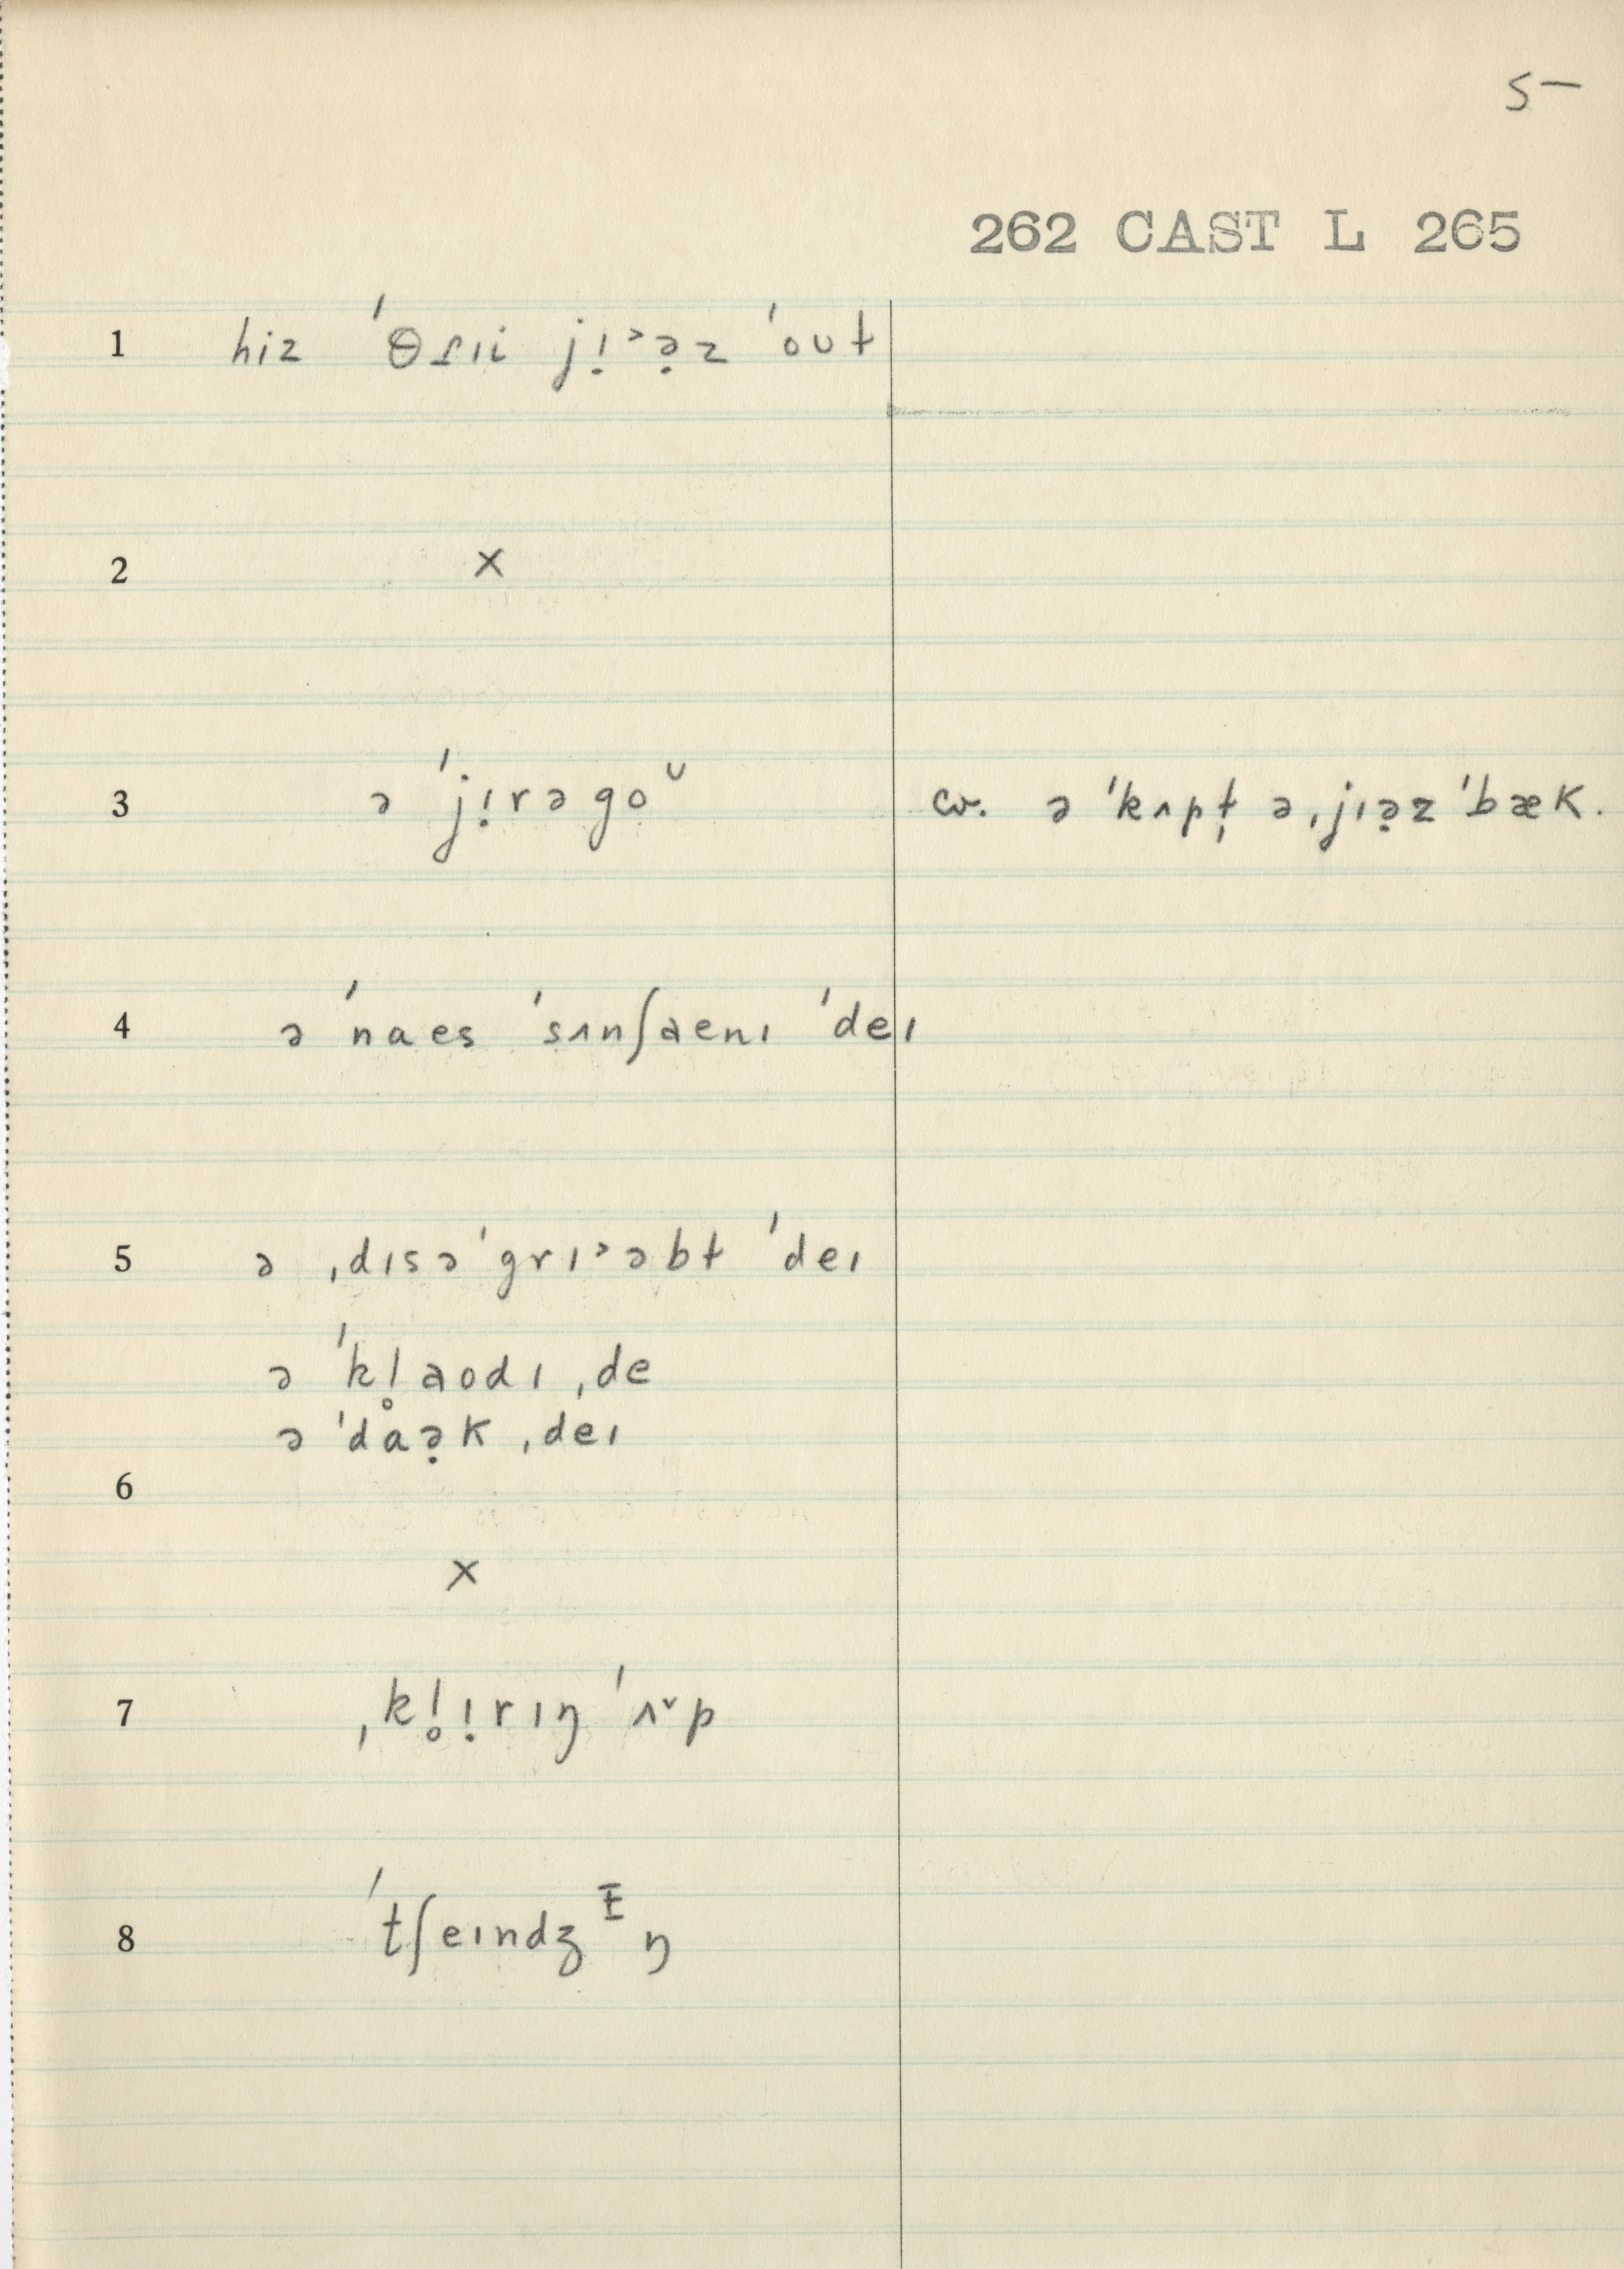 5–
262 CAST L 265
1 hiz ˈθɾɪi jɪ̣ᵊə̣z ˈoʊɫ
2 ×
3 ə ˈjɪ̣rəgoᶷ cv. ə ˈkʌpɫ̩ ə ˌjɪə̣z ˈbæk.
4 ə ˈnaes ˈsʌnʃaenɪ ˈdeɪ
5 ə ˌdɪsəˈgrɪᵊəbɫ ˈdeɪ
ə ˈkl̥aodɪ ˌde
ə ˈdɑə̣k ˌdeɪ
6
×
7 ˌkl̥ɪ̣rɪŋ ˈʌ˅p
8 ˈtʃeɪndʒᶧŋ